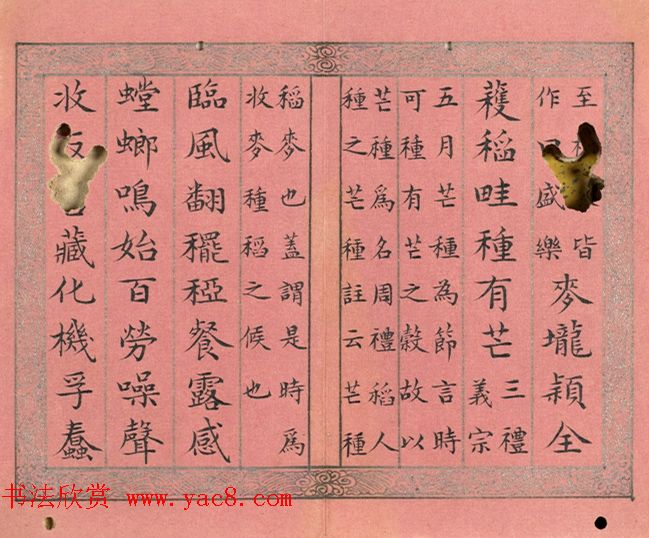 至皆
作盛樂
麥壠穎全
穫稻畦種有芒
三禮
義宗
五月芒種為節言時
可種有芒之穀故以
芒種爲名周禮稻人
種之芒種註云芒種
稻麥也蓋謂是時爲
收麥種稻之候也
臨風翻穲稏餐露感
螳螂鳴始百勞噪聲
收反舌藏化機孚蠢
书法欣赏 www.yac8.com